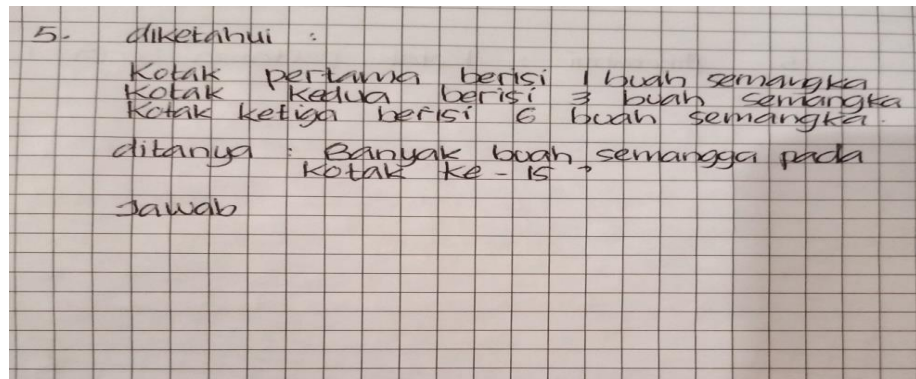 5. diketahui :
Kotak pertama berisi 1 buah semangka
Kotak kedua berisi 3 buah semangka
Kotak ketiga berisi 6 buah semangka.
ditanya : Banyak buah semangga pada
kotak ke - 15 ?
Jawab